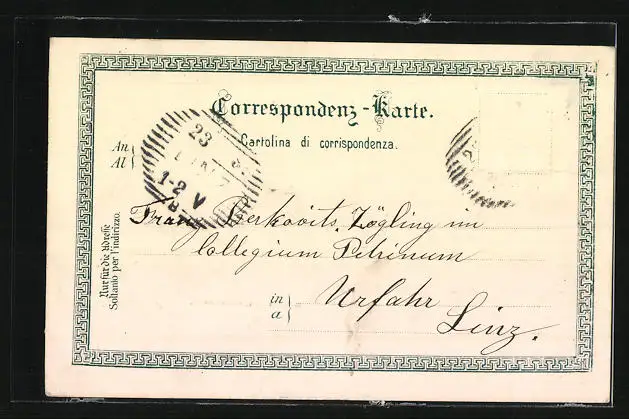 Correspondenz-Karte.
Cartolina di corrispondenza.
An
Al
23
1-2 V
Franz Zögling im
Collegium Petrinum
in
a
Urfahr
Linz.
Nur für die Adresse
Soltanto per l'indirizzo.